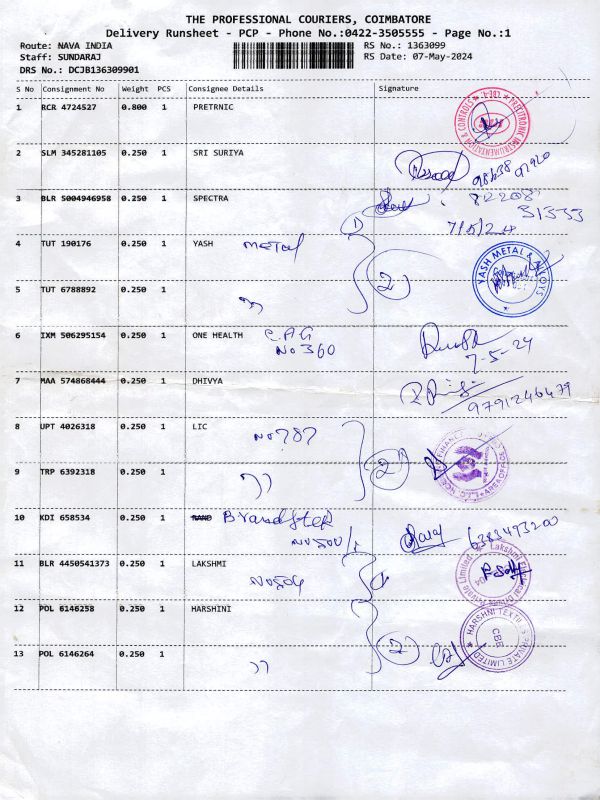 THE PROFESSIONAL COURIERS, COIMBATORE
Delivery Runsheet - PCP - Phone No.:0422-3505555 - Page No.:1
Route: NAVA INDIA
RS No.: 1363099
Staff: SUNDARAJ
RS Date: 07-May-2024
DRS No.: DCJB136309901
S No Consignment No Weight PCS Consignee Details Signature
1 RCR 4724527 0.800 1 PRETRNIC
2 SLM 345281105 0.250 1 SRI SURIYA
3 BLR 5004946958 0.250 1 SPECTRA
31333
7/5/24
4 TUT 190176 0.250 1 YASH METAL
2
YASH METAL & ALLOYS
5 TUT 6788892 0.250 1 ,,
6 IXM 506295154 0.250 1 ONE HEALTH
No 360
7-5-24
7 MAA 574868444 0.250 1 DHIVYA
9791246479
8 UPT 4026318 0.250 1 LIC
No 787
2
9 TRP 6392318 0.250 1 ,,
10 KDI 658534 0.250 1
6383493200
11 BLR 4450541373 0.250 1 LAKSHMI
No 504
12 POL 6146258 0.250 1 HARSHINI
2
HARSHNI TEXTILES PRIVATE LIMITED
CBE
13 POL 6146264 0.250 1 ,,